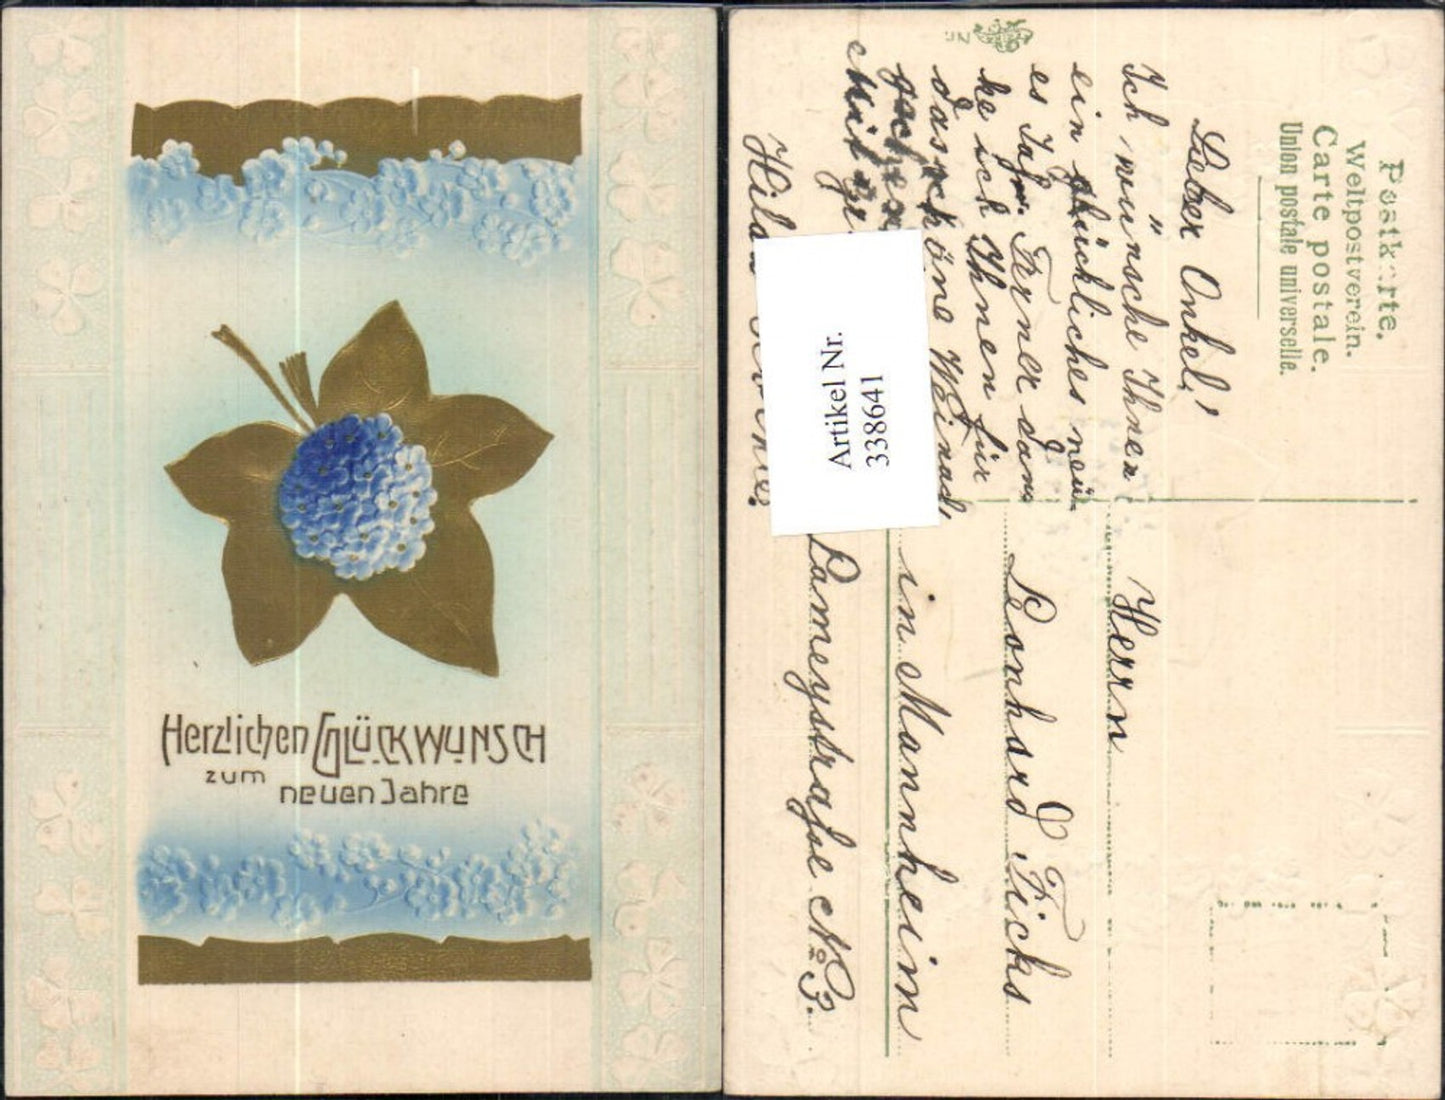 Herzlichen Glückwunsch
zum
neuen Jahre
Postkarte.
Weltpostverein.
Carte postale.
Union postale universelle.
Lieber Onkel!
Ich wünsche Ihnen
ein glückliches neu
es Jahr. Ferner dan
ke ich Ihnen für
das schöne Weinach
geschenk
Mit
Artikel Nr.
338641
Herrn
Leonhard Fichs
in Mannheim
Lameystraße No
Nr.